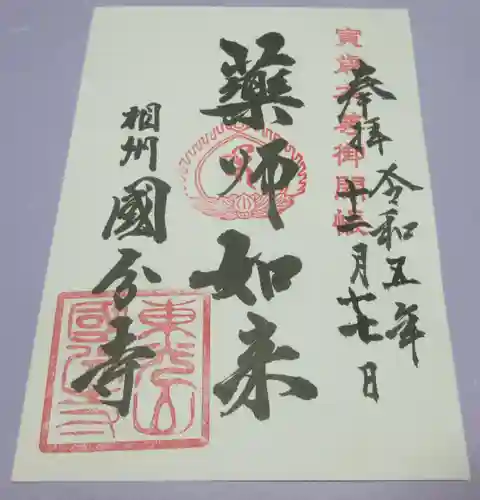 寅歳本尊御開帳
奉拝 令和五年
十二月十七日
藥師如来
相州
國分寺
東光山
國分寺